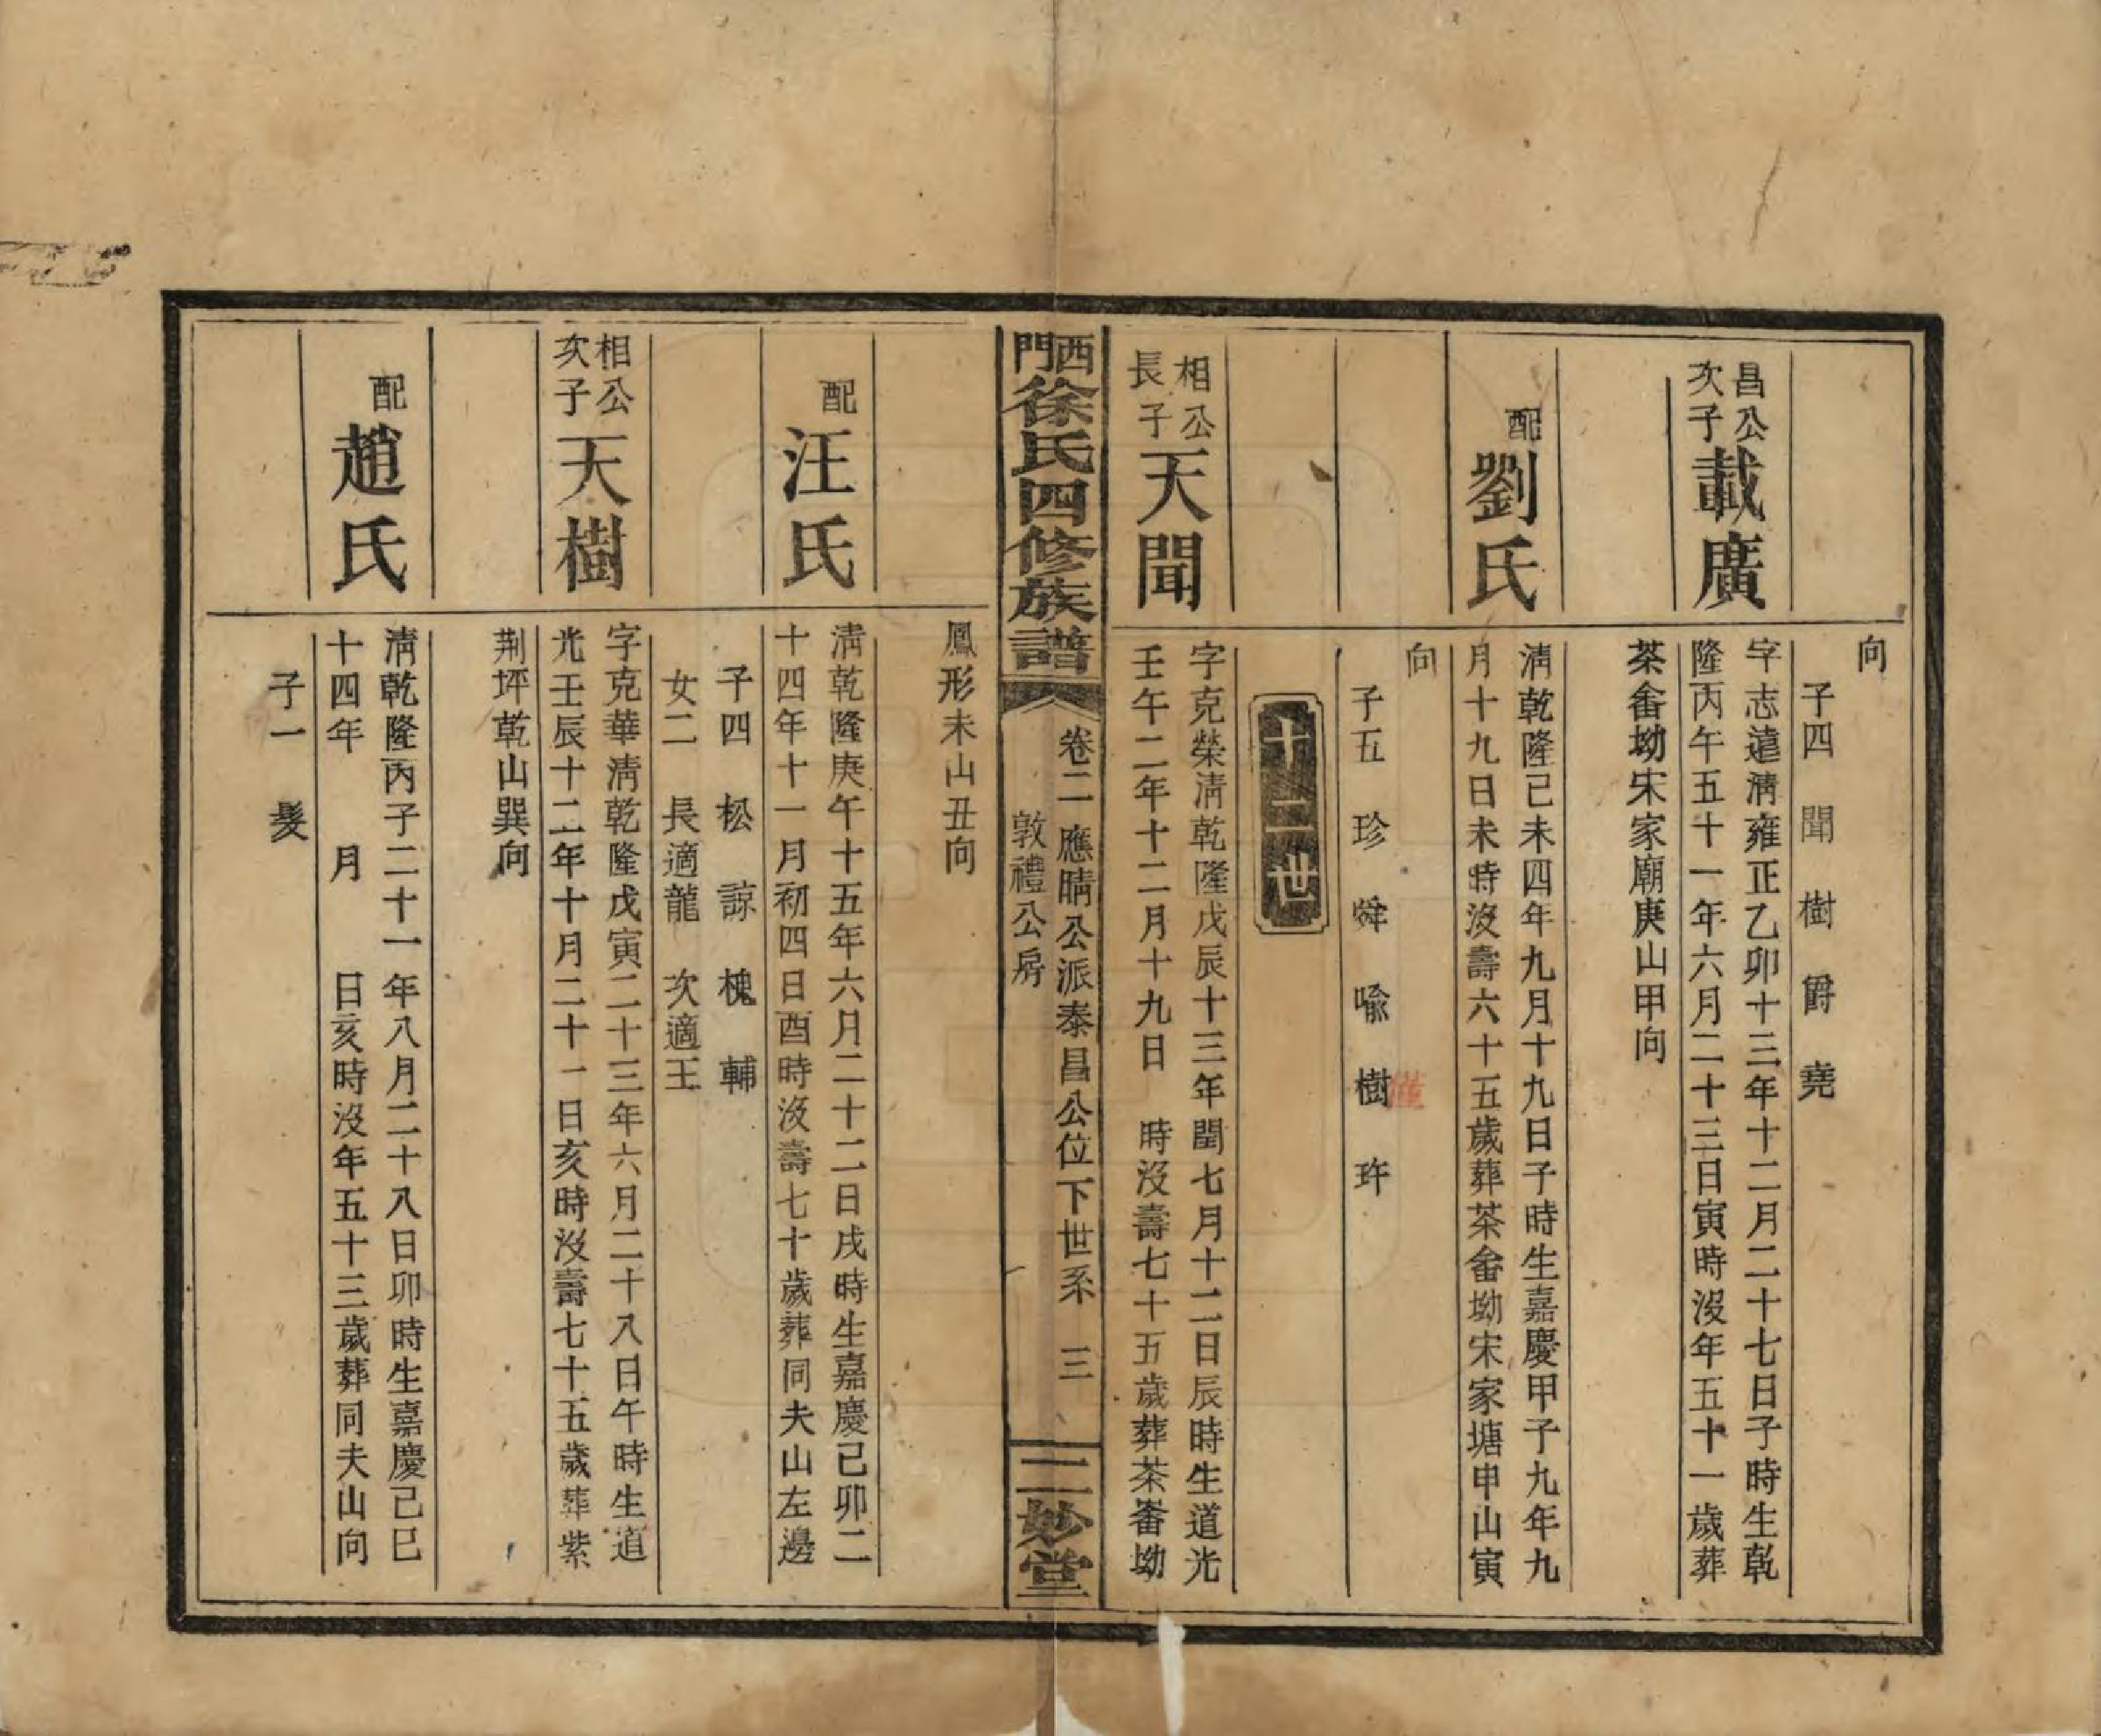 向
子四　聞　樹　爵　堯
昌公
次子
載廣
字志遠淸雍正乙卯十三年十二月二十七日子時生乾
隆丙午五十一年六月二十三日寅時沒年五十一歲葬
茶畬坳宋家廟庚山甲向
配
劉氏
淸乾隆已未四年九月十九日子時生嘉慶甲子九年九
月十九日未時沒壽六十五歲葬茶畬坳宋家塘申山寅
向
子五　珍　舜　喩　樹　玝
十二世
相公
長子
天聞
字克榮淸乾隆戊辰十三年閏七月十二日辰時生道光
壬午二年十二月十九日　時沒壽七十五歲葬茶畬坳
西門徐氏四修族譜
卷二　應晴公派泰昌公位下世系　三
敦禮公房
二妙堂
鳳形未山丑向
配
汪氏
淸乾隆庚午十五年六月二十二日戌時生嘉慶己卯二
十四年十一月初四日酉時沒壽七十歲葬同夫山左邊
子四　松　諒　槐　輔
女二　長適龍　次適王
相公
次子
天樹
字克華淸乾隆戊寅二十三年六月二十八日午時生道
光壬辰十二年十月二十一日亥時沒壽七十五歲葬紫
荆坪乾山巽向
配
趙氏
淸乾隆丙子二十一年八月二十八日卯時生嘉慶己巳
十四年　月　日亥時沒年五十三歲葬同夫山向
子一　髮